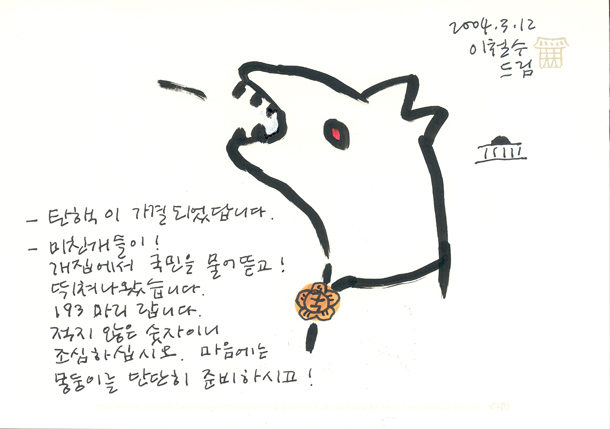 2004.3.12
이철수
드림
- 탄핵이 가결되었답니다.
- 미친개들이!
개집에서 국민을 물어뜯고!
뛰쳐나왔습니다.
193 마리 랍니다.
적지 않은 숫자이니
조심하십시오. 마음에는
몽둥이를 단단히 준비하시고!